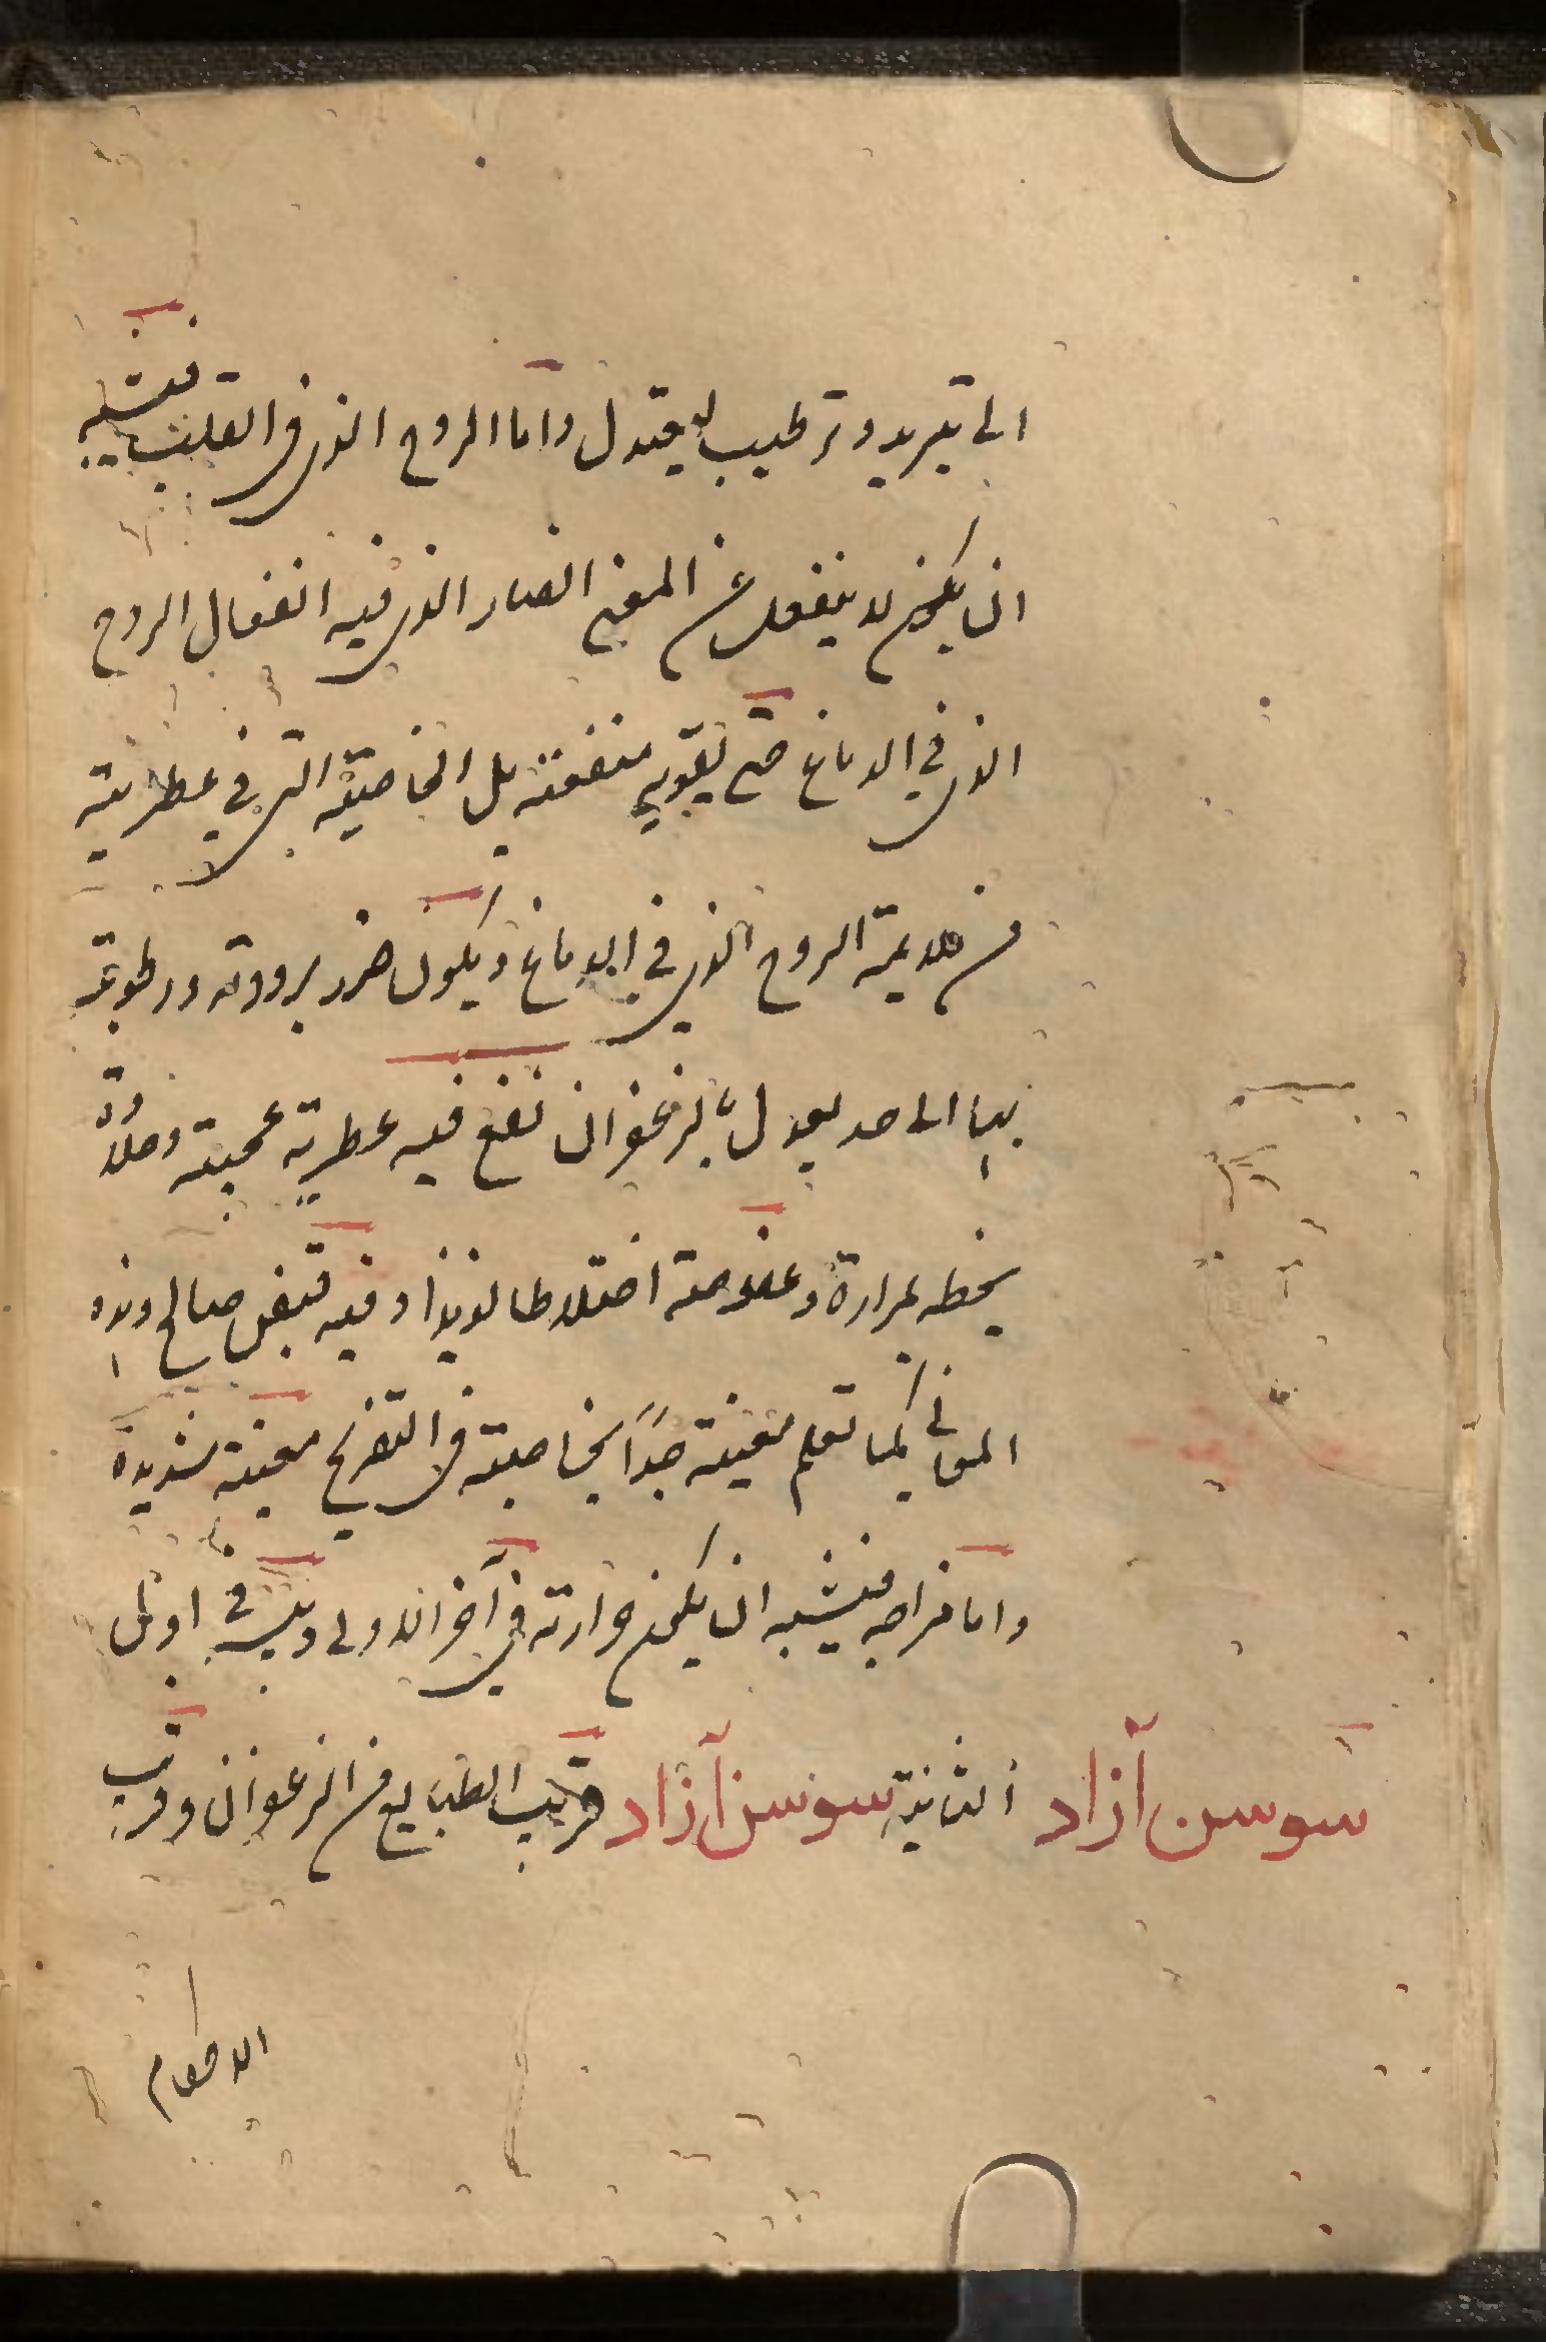 الى تبريد وترطيب ليعتدل واما الروح الذى فى القلب فيشبه
ان يكون لا ينفعل عن المعنى الضار الذى فيه انفعال الروح
الذى فى الدماغ حتى تقويه منفعته بل الخاصية التى فى عطريته
من ملايمة الروح الذى فى الدماغ ويكون ضرر برودته ورطوبته
بها الى حد يعدل بالزعفران تفاح فيه عطرية عجيبة وحلاوة
يخلطه مرارة وعفوصة اختلاطا لذيذا وفيه قبض صالح وهذه
المعانى كما تعلم معينة جدا بخاصية فى التفريح معينة شديدة
واما مزاجه فيشبه ان يكون حرارته فى آخر الاولى ويبسه فى اوائل
سوسن آزاد
الثانية سوسن آزاد قريب الطبايع من الزعفران وقريب
الاحكام